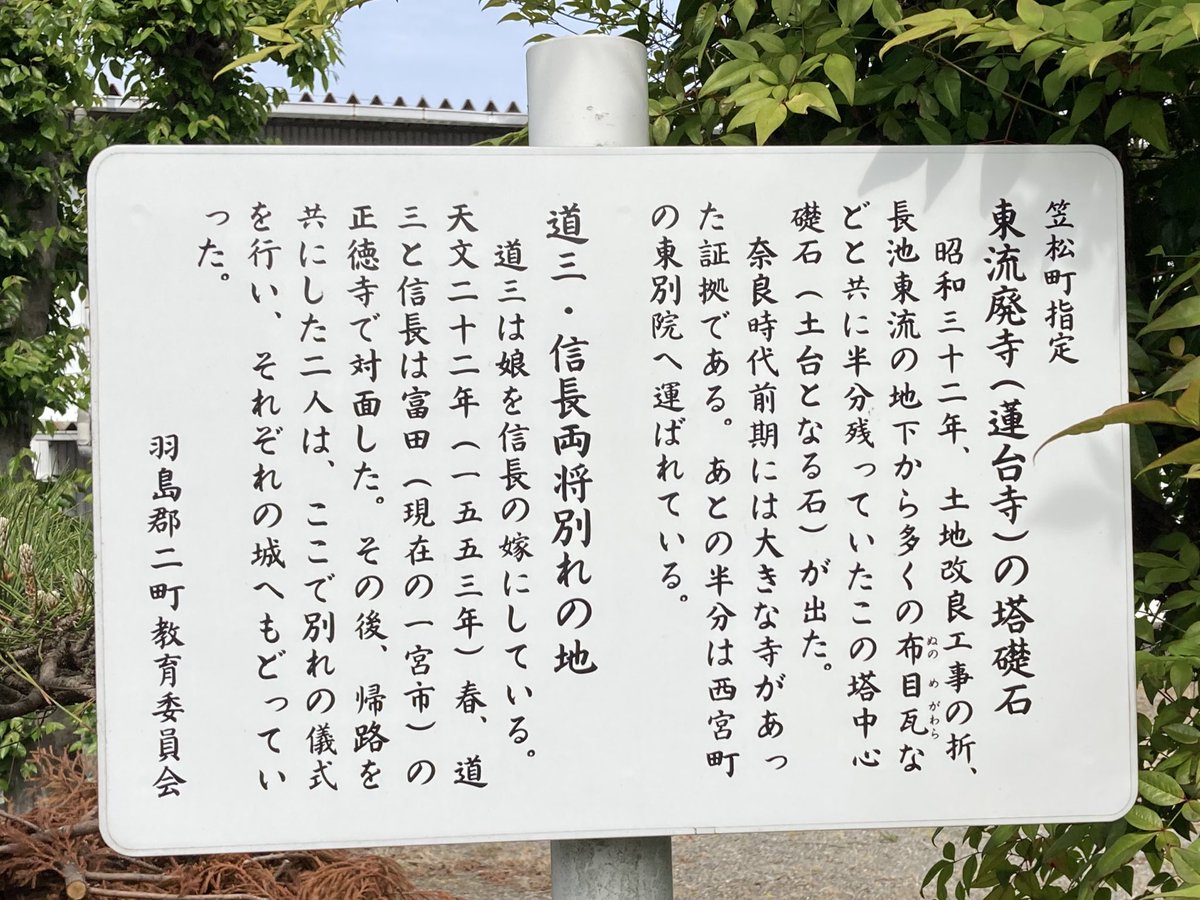 笠松町指定
東流廃寺(蓮台寺)の塔礎石
昭和三十二年、土地改良工事の折、
長池東流の地下から多くの布目瓦な
ぬの め がわら
どと共に半分残っていたこの塔中心
礎石(土台となる石)が出た。
奈良時代前期には大きな寺があっ
た証拠である。あとの半分は西宮町
の東別院へ運ばれている。
道三・信長両将別れの地
道三は娘を信長の嫁にしている。
天文二十二年(一五五三年)春、道
三と信長は富田(現在の一宮市)の
正徳寺で対面した。その後、帰路を
共にした二人は、ここで別れの儀式
を行い、それぞれの城へもどってい
った。
羽島郡二町教育委員会